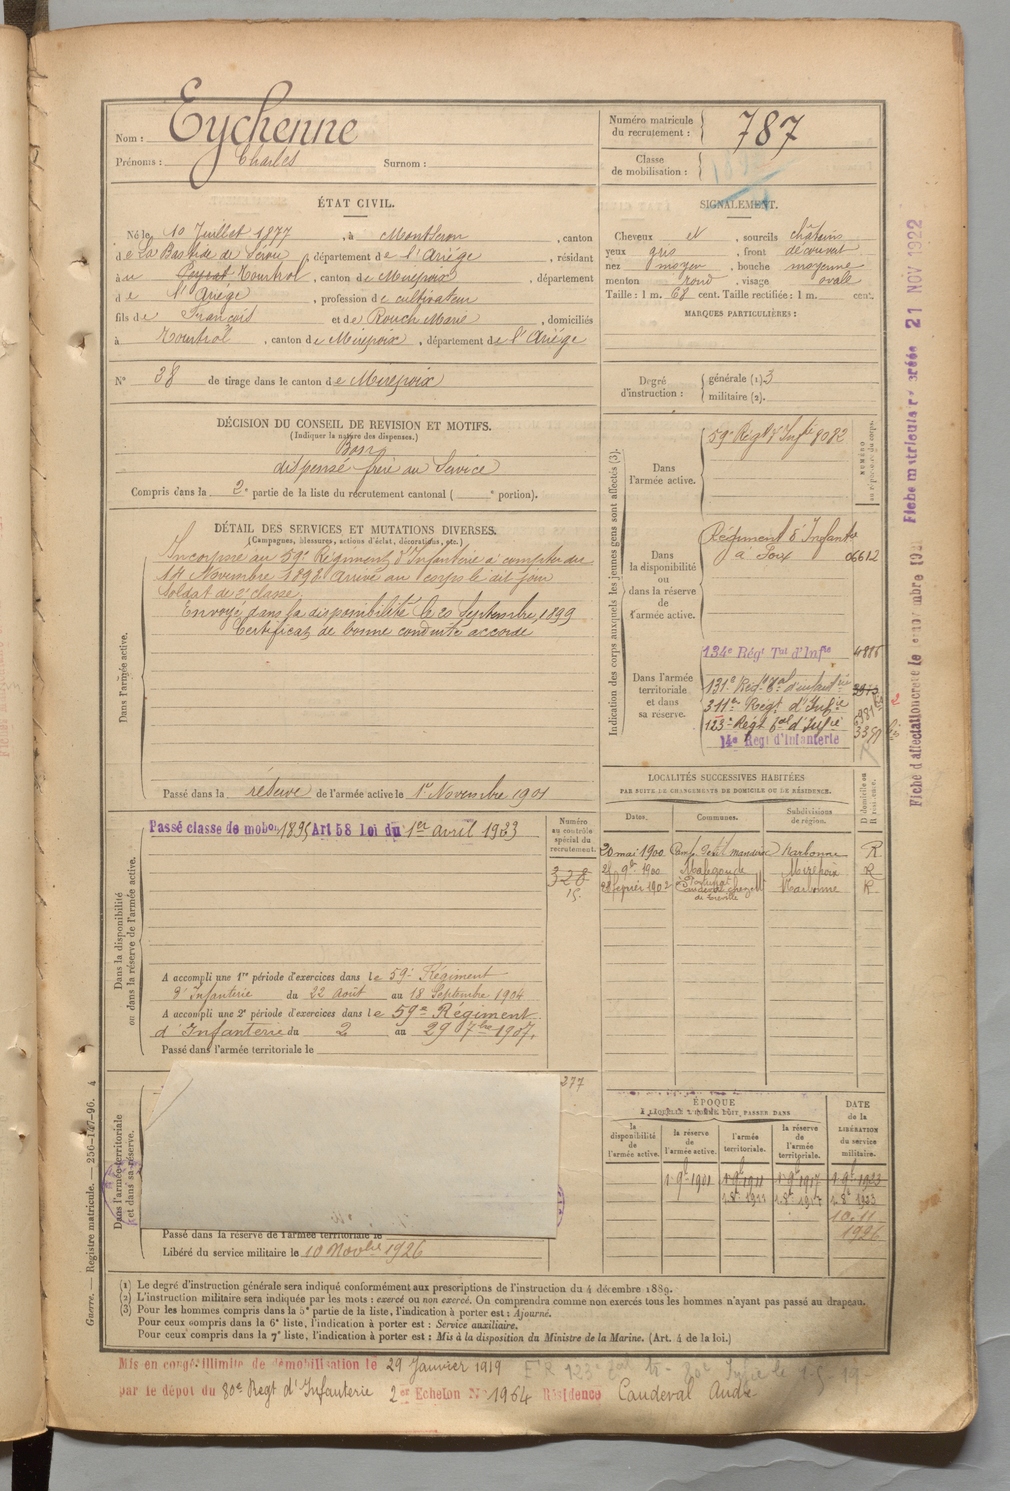 Nom : Eychenne
Prénoms : Charles Surnom :
Numéro matricule du recrutement : 787
Classe de mobilisation :
ÉTAT CIVIL.
Né le 10 Juillet 1877, à Montseron, canton
de La Bastide de Sérou, département de l'Ariège, résidant
à Tourtrol, canton de Mirepoix, département
de l'Ariége, profession de cultivateur
fils de François et de Rouch Marie, domiciliés
à Tourtrol, canton de Mirepoix, département de l'Ariége
N° 38 de tirage dans le canton de Mirepoix
SIGNALEMENT.
Cheveux et, sourcils châtains
yeux gris, front découvert
nez moyen, bouche moyenne
menton rond, visage ovale
Taille : 1 m. 68 cent. Taille rectifiée : 1 m. cent.
MARQUES PARTICULIÈRES :
Degré d'instruction : générale (1) 3
militaire (2).
DÉCISION DU CONSEIL DE REVISION ET MOTIFS.
(Indiquer la nature des dispenses.)
Bon
dispensé frère au Service
Compris dans la 2e partie de la liste du recrutement cantonal ( e portion).
DÉTAIL DES SERVICES ET MUTATIONS DIVERSES.
(Campagnes, blessures, actions d'éclat, décorations, etc.)
Dans l'armée active.
Incorporé au 59e Régiment d'Infanterie à compter du
14 Novembre 1898 arrivé au corps le dit jour
Soldat de 2e classe.
Envoyé dans la disponibilité le 20 Septembre 1899
Certificat de bonne conduite accordé
Passé dans la réserve de l'armée active le 1er Novembre 1901
Indication des corps auxquels les jeunes gens sont affectés (3).
NUMÉRO
Dans l'armée active.
59e Régt d'Infie 8082
Dans la disponibilité ou dans la réserve de l'armée active.
Régiment d'Infanterie
à Foix 06612
Dans l'armée territoriale et dans sa réserve.
134e Régt Tal d'Infie
131e Régt tal d'infanterie
311e Régt d'Infie
123e Régt tal d'Infie
14e Regt d'Infanterie
LOCALITÉS SUCCESSIVES HABITÉES
PAR SUITE DE CHANGEMENTS DE DOMICILE OU DE RÉSIDENCE.
Dates. Communes. Subdivisions de région. D domicile ou R résidence.
20 mai 1900 Narbonne R
9bre 1900 Malegoude Mirepoix R
février 1902 Narbonne R
Dans la disponibilité ou dans la réserve de l'armée active.
Passé classe de mobon 1895 Art 58 Loi du 1er avril 1923
Numéro au contrôle spécial du recrutement.
328
A accompli une 1re période d'exercices dans le 59e Régiment
d'Infanterie du 22 Août au 18 Septembre 1904
A accompli une 2e période d'exercices dans le 59e Régiment
d'Infanterie du 2 au 29 7bre 1907.
Passé dans l'armée territoriale le
Dans l'armée territoriale et dans sa réserve.
Passé dans la réserve de l'armée territoriale le
Libéré du service militaire le 10 Novbre 1926
ÉPOQUE
À LAQUELLE L'HOMME DOIT PASSER DANS
la disponibilité de l'armée active.
la réserve de l'armée active.
l'armée territoriale.
la réserve de l'armée territoriale.
DATE de la LIBÉRATION du service militaire.
1 9bre 1901 1 9bre 1911 1 9bre 1917 1 9bre 1923
10.11
1926
(1) Le degré d'instruction générale sera indiqué conformément aux prescriptions de l'instruction du 4 décembre 1889.
(2) L'instruction militaire sera indiquée par les mots : exercé ou non exercé. On comprendra comme non exercés tous les hommes n'ayant pas passé au drapeau.
(3) Pour les hommes compris dans la 5e partie de la liste, l'indication à porter est : Ajourné.
Pour ceux compris dans la 6e liste, l'indication à porter est : Service auxiliaire.
Pour ceux compris dans la 7e liste, l'indication à porter est : Mis à la disposition du Ministre de la Marine. (Art. 4 de la loi.)
Mis en congé illimité de démobilisation le 29 Janvier 1919
par le dépot du 80e Regt d'Infanterie 2er Echelon N° 1964 Résidence Caudeval Aude
Guerre. — Registre matricule. — 256-147-96. 4
21 NOV 1922